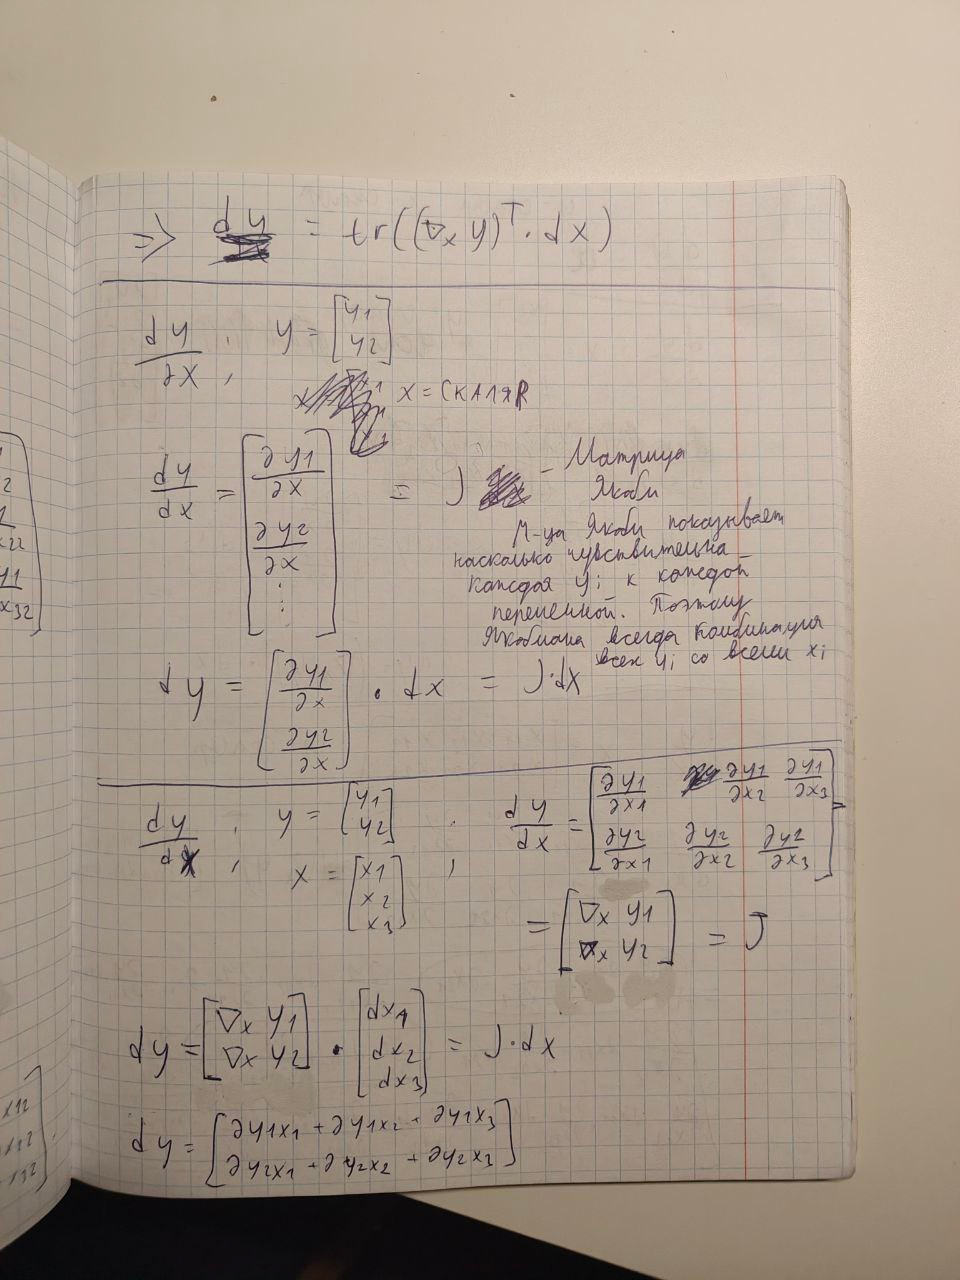 => dy = tr((∇ₓ y)ᵀ · dx)
dy/∂x , y = [y1 y2]
x = СКАЛЯР
dy/dx = [∂y1/∂x ∂y2/∂x ⋮] = J – Матрица
Якоби
М-ца Якоби показывает
насколько чувствительна
каждая yi к каждой
переменной. Поэтому
Якобиана всегда комбинация
всех yi со всеми xi
dy = [∂y1/∂x ∂y2/∂x] · dx = J·dx
dy/dx , y = [y1 y2] , dy/dx = [∂y1/∂x1 ∂y1/∂x2 ∂y1/∂x3
∂y2/∂x1 ∂y2/∂x2 ∂y2/∂x3]
x = [x1 x2 x3] ,
= [∇x y1 ∇x y2] = J
dy = [∇x y1 ∇x y2] · [dx1 dx2 dx3] = J·dx
dy = [∂y1x1 + ∂y1x2 + ∂y1x3
∂y2x1 + ∂y2x2 + ∂y2x3]